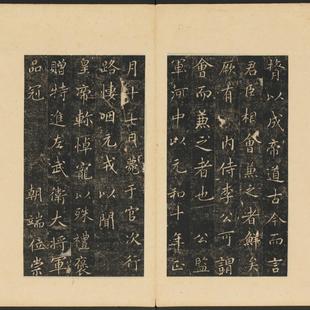 贊以成帝道古今而言
君臣相會兼之者鮮矣
厥有 內侍李公可謂
會而兼之者也 公監
軍河中以元和
年正
月十七日薨于官次行
路悽咽元戎以聞
皇帝軫悼寵以殊禮褒
贈特進左武衛大將軍
品冠 朝端位崇